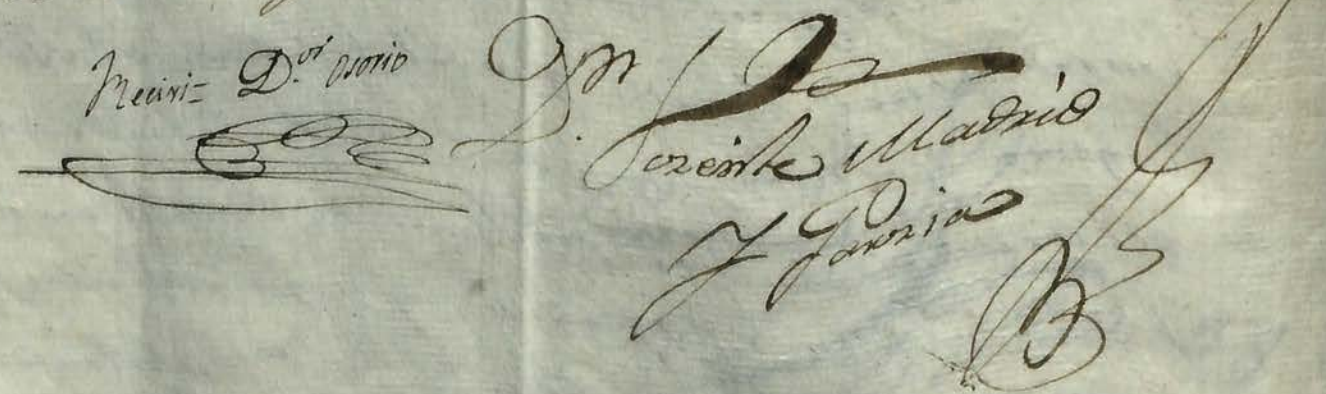 Reciví= D.or Osorio
D.n
Lorente Madrid
y Garzia